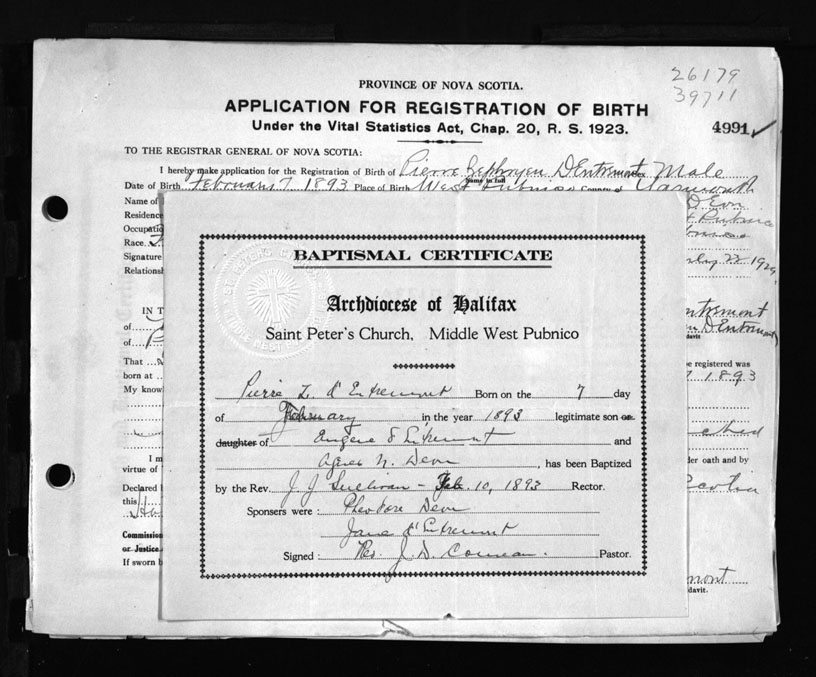 26179
39711
PROVINCE OF NOVA SCOTIA.
APPLICATION FOR REGISTRATION OF BIRTH
Under the Vital Statistics Act, Chap. 20, R. S. 1923.
4991
TO THE REGISTRAR GENERAL OF NOVA SCOTIA:
I hereby make application for the Registration of Birth of Pierre DEntremont Sex Male
Name in full
Date of Birth February 7 1893 Place of Birth West Pubnico County of Yarmouth
Name of
Residence
Occupatio
Race
Signature
22 1929
Relationsh
IN T
of
of
That
be registered was
born at
7 1893
My know
I m
der oath and by
virtue of
Declared
Scotia
this
Commission
or Justice
If sworn b
davit.
BAPTISMAL CERTIFICATE
Archdiocese of Halifax
Saint Peter's Church, Middle West Pubnico
Pierre Z. d'Entremont Born on the 7 day
of February in the year 1893 legitimate son or
daughter of Eugene d'Entremont and
Agnes N. Deon, has been Baptized
by the Rev. J J Sullivan - Feb. 10, 1893 Rector.
Sponsors were : Theodore Deon
Jane d'Entremont
Signed : Rev. J. D. Comeau. Pastor.